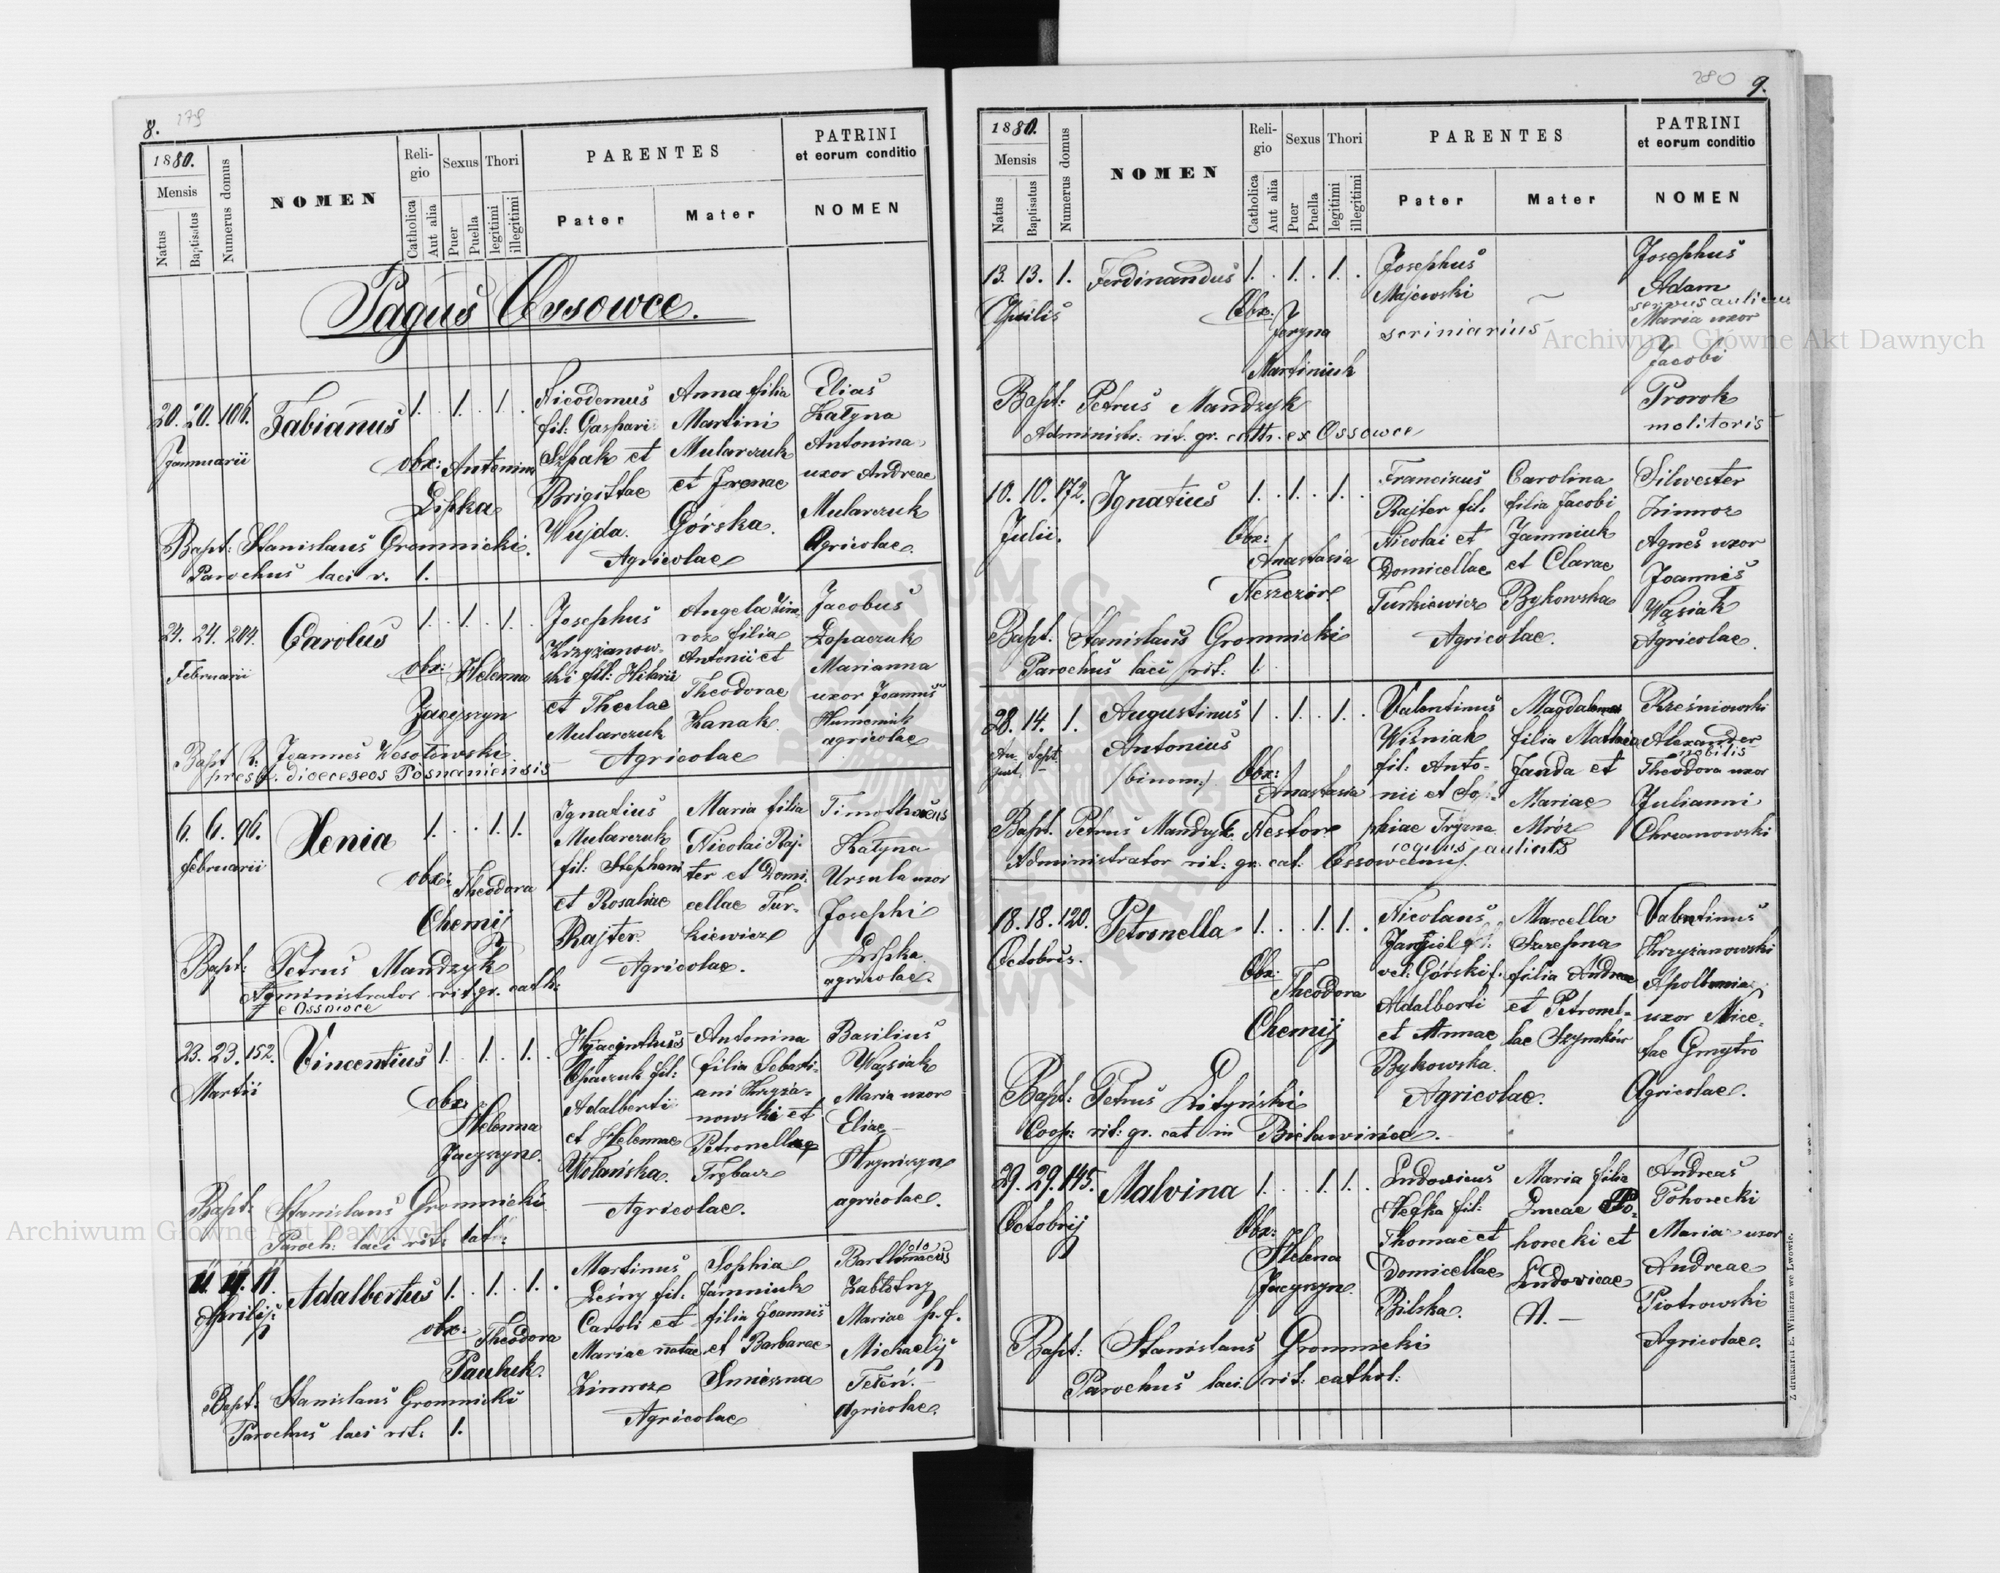 8. 179
1880.
Mensis
Natus
Baptisatus
Numerus domus
NOMEN
Religio
Catholica
Aut alia
Sexus
Puer
Puella
Thori
legitimi
illegitimi
PARENTES
Pater
Mater
PATRINI
et eorum conditio
NOMEN
Pagus Ossowce.
20. 20. 106.
Januarii
Fabianus
1. . 1. . 1. .
obx: Antonina
Lipka
Nicodemus
fil: Gaspari
Szpak et
Brigittae
Wujda.
Anna filia
Martini
Mularczuk
et Irenae
Górska.
Agricolae
Elias
Katyna
Antonina
uxor Andreae
Mularczuk
Agricolae.
Bapt: Stanislaus Gromnicki.
Parochus laci r. l.
24. 24. 204.
Februarii
Carolus
1. . 1. . 1. .
obx: Helena
Jacyszyn
Josephus
Krzyżanow-
ski fil: Hilarii
et Theclae
Mularczuk
Angela Zim-
roz filia
Antonii et
Theodorae
Kanak.
Agricolae
Jacobus
Łopaczuk
Marianna
uxor Joannis
Humeniuk
agricolae
Bapt R: Joannes Kosotowski
presb. dioeceseos Posnaniensis
6. 6. 96.
Februarii
Xenia
1. . . 1. 1.
obx: Theodora
Chemij
Ignatius
Mularczuk
fil: Stephani
et Rosaliae
Rajter.
Maria filia
Nicolai Raj-
ter et Domi-
cellae Tur-
kiewicz
Agricolae.
Timotheus
Katyna
Ursula uxor
Josephi
Lipka
agricolae.
Bapt: Petrus Mandzyk
Administrator rit. gr. cath:
e Ossowce
23. 23. 152.
Martii
Vincentius
1. . 1. . 1. .
obx:
Helena
Jacyszyn.
Hyacinthus
Opaczuk fil:
Adalberti
et Helenae
Wolańska.
Antonina
filia Sebasti-
ani Krzyża-
nowski et
Petronellae
Trębacz
Agricolae.
Basilius
Wąsiak
Maria uxor
Eliae
Hryniszyn
agricolae.
Bapt: Stanislaus Gromnicki
Paroch: laci rit: lat:
11. 11. 11.
Aprilij:
Adalbertus
1. . 1. . 1. .
obx: Theodora
Pauluk.
Martinus
Leśny fil:
Caroli et
Mariae natae
Zimroz
Sophia
Jamniuk
filia Joannis
et Barbarae
Smieszna
Agricolae
Bartholomaeus
Zabłotny
Mariae p. f.
Michaelis
Teteń.
Agricolae.
Bapt: Stanislaus Gromnicki
Parochus laci rit: l.
280 9.
1880.
Mensis
Natus
Baptisatus
Numerus domus
NOMEN
Religio
Catholica
Aut alia
Sexus
Puer
Puella
Thori
legitimi
illegitimi
PARENTES
Pater
Mater
PATRINI
et eorum conditio
NOMEN
13. 13. 1.
Aprilis
Ferdinandus
1. . 1. . 1. .
Obx:
Jryna
Martiniuk
Josephus
Majewski
scriniarius
Josephus
Adam
servus aulicus
Maria uxor
Jacobi
Prorok
molitoris
Bapt: Petrus Mandzyk
Administr: rit. gr. cath. ex Ossowce
10. 10. 172.
Julii.
Ignatius
1. . 1. . 1. .
Obx:
Anastasia
Neszczór.
Franciscus
Rajter fil.
Nicolai et
Domicellae
Turkiewicz
Carolina
filia Jacobi
Jamniuk
et Clarae
Bykowska
Agricolae.
Silvester
Zimroz
Agnes uxor
Joannis
Wąsiak
Agricolae.
Bapt. Stanislaus Gromnicki
Parochus laci rit: l.
28. 14. 1.
Au- Sept.
gust.
Augustinus
Antonius
(binom.)
1. . 1. . 1. .
Obx:
Anastasia
Nestor
Valentinus
Wiśniak
fil: Anto-
nii et So-
phiae Tryzna
Magdalena
filia Mathia
Janda et
Mariae
Mróz
coquus aulicus
Rześniowski
Alexander
nobilis
Theodora uxor
Julianni
Chrzanowski
Bapt. Petrus Mandzyk
Administrator rit: gr. cat: Ossowcensis
18. 18. 120.
Octobris.
Petronella
1. . . 1. 1. .
Obx:
Theodora
Chemij
Nicolaus
vel: Górski f.
Adalberti
et Annae
Bykowska.
Marcella
Szzepna
filia Andreae
et Petronel-
lae Szymków
Agricolae.
Valentinus
Krzyżanowski
Apollonia
uxor Nice-
fae Gmytro
Agricolae.
Bapt: Petrus Lityński
Coop: rit: gr. cat in Bielawińce.
29. 29. 145.
Octobrij
Malvina
1. . . 1. 1. .
Obx:
Helena
Jacyszyn
Ludovicus
Hegka fil:
Thomae et
Domicellae
Bilska.
Maria filia
Lucae Po-
horecki et
Ludovicae
N. —
Andreas
Pohorecki
Maria uxor
Andreae
Piotrowski
Agricolae.
Bapt: Stanislaus Gromnicki
Parochus laci. rit: cathol:
Z drukarni E. Winiarza we Lwowie.
Archiwum Główne Akt Dawnych
Archiwum Główne Akt Dawnych